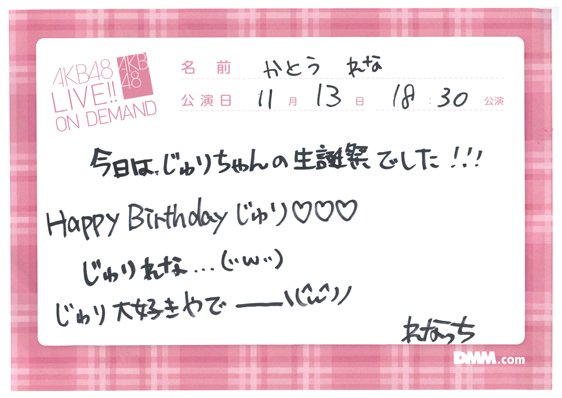 AKB48
LIVE!!
ON DEMAND
AKB
48
名前 かとう れな
公演日 11月13日 18:30公演
今日は、じゅりちゃんの生誕祭でした!!!
Happy Birthdayじゅり♡♡♡
じゅりれな...(¨ω¨)
じゅり大好きやで——\\(^ω^)//
れなっち
DMM.com